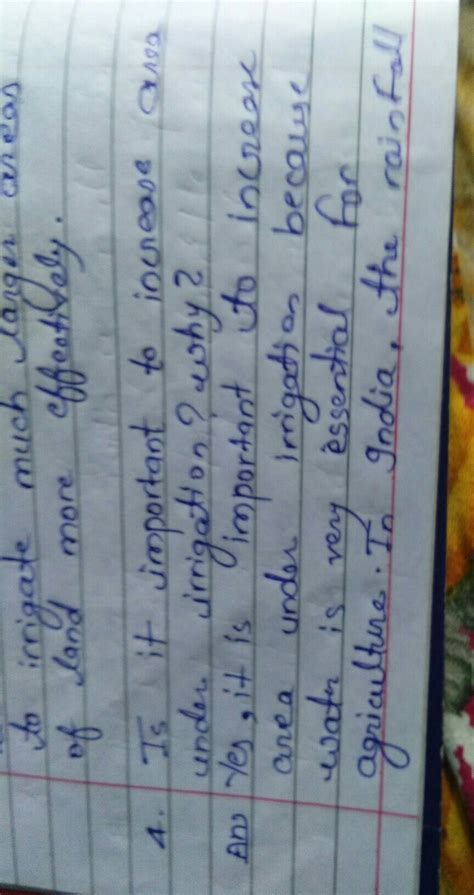 to irrigate much larger areas
of land more effectively.
4. Is it important to increase area
under irrigation? why?
Ans Yes, it is important to increase
area under irrigation because
water is very essential for
agriculture. In India, the rainfall